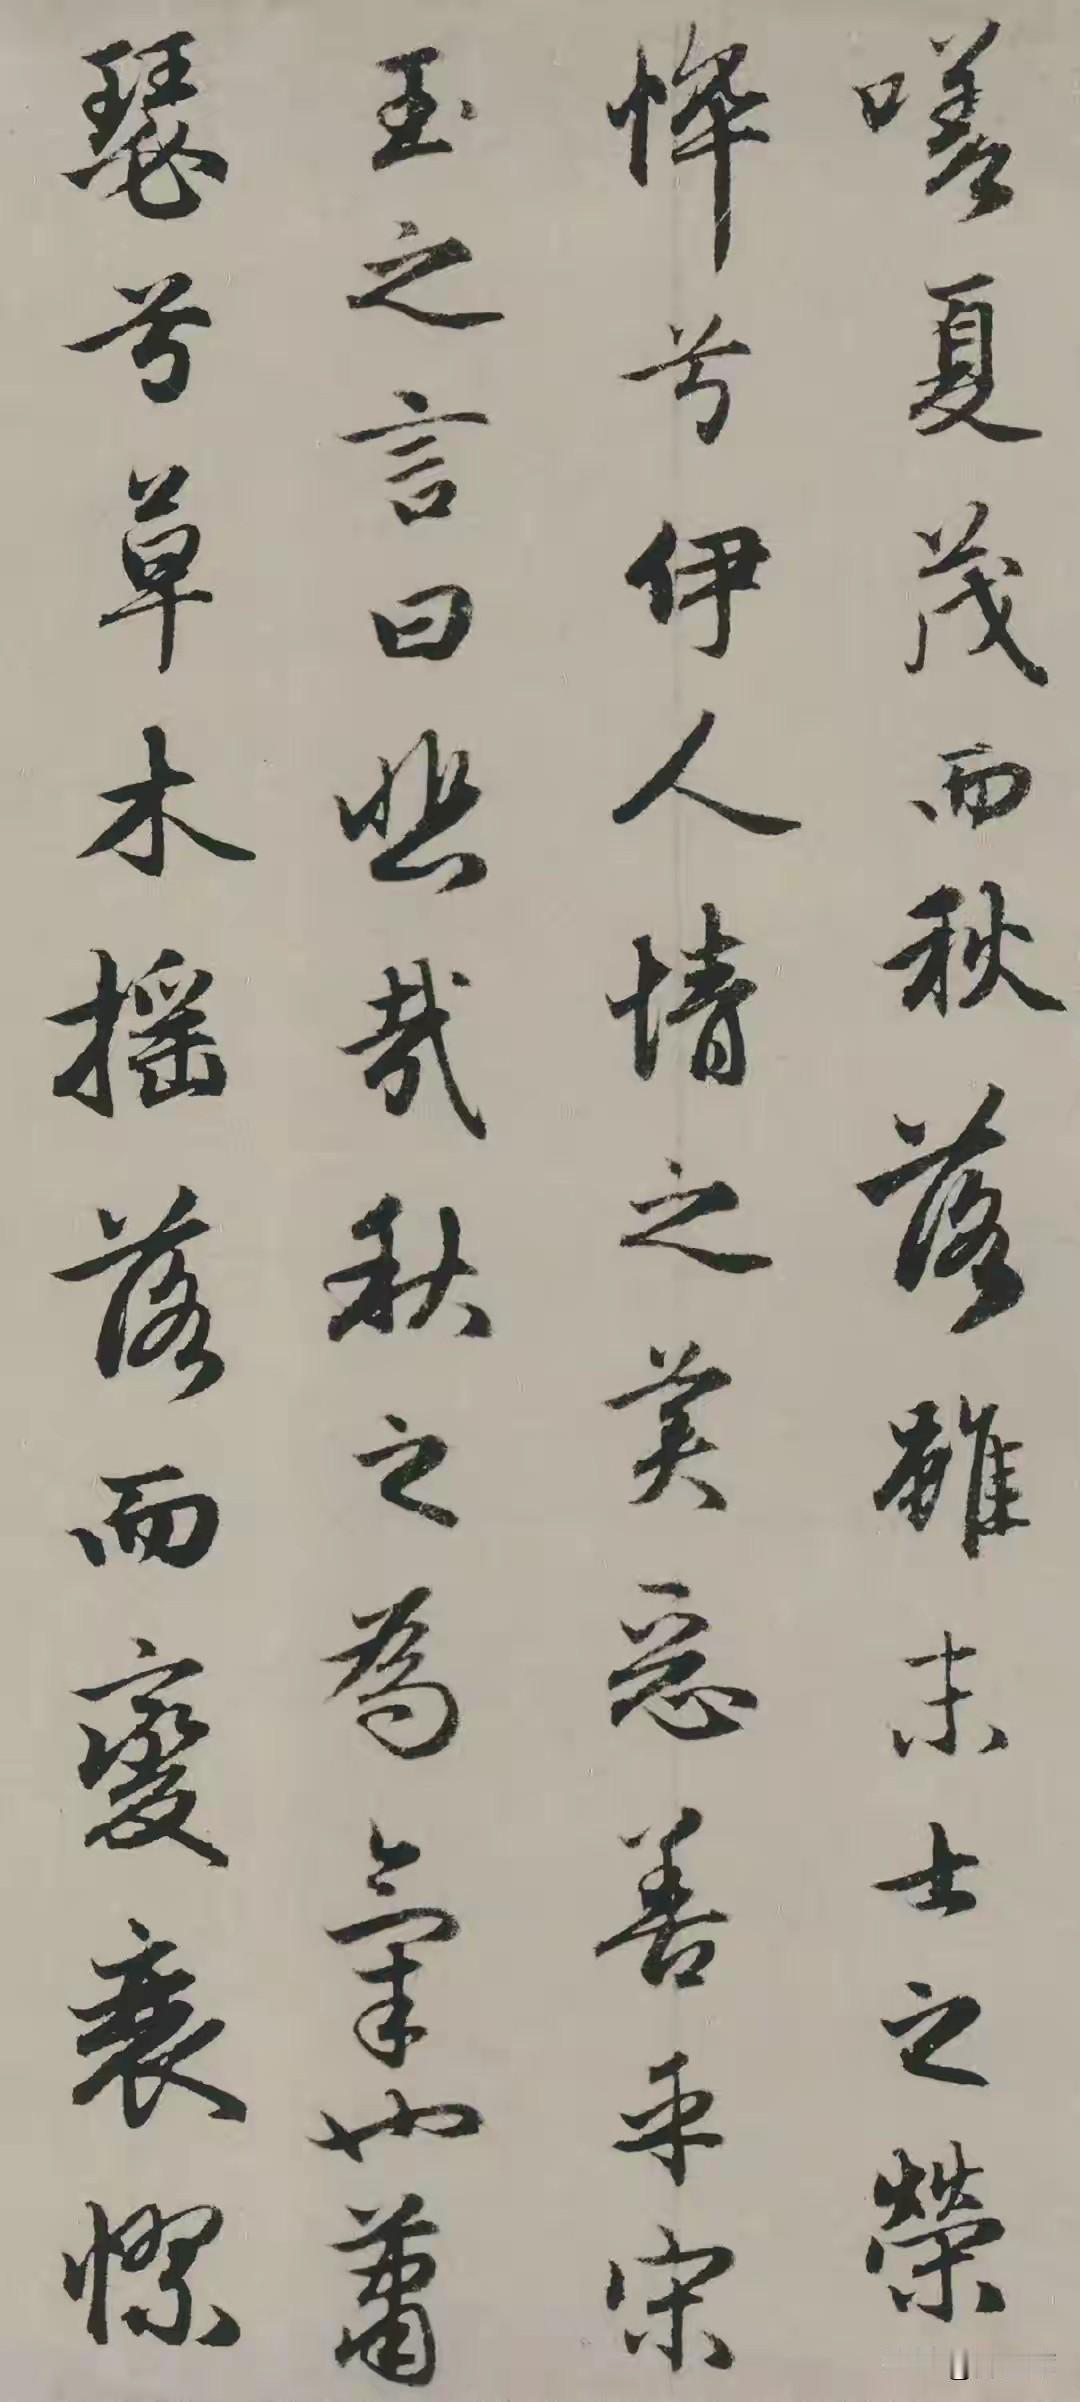 嗟夏茂而秋落雖末士之榮
悴兮伊人情之美惡善乎宋
玉之言曰悲哉秋之為氣也蕭
瑟兮草木摇落而變衰憀